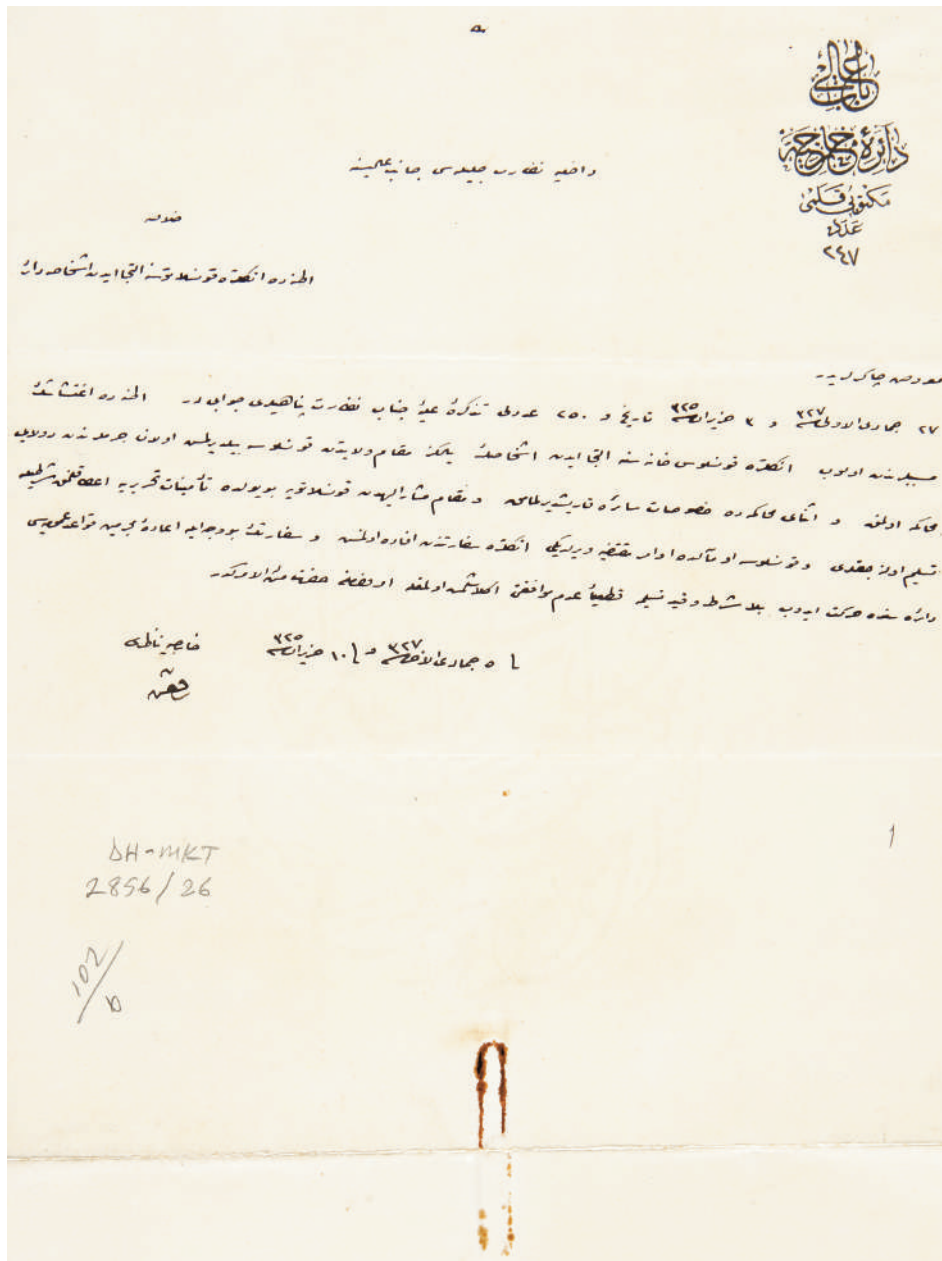 باب عالی
دائرهٔ خارجیه
مكتوبی قلمی
عدد
٢٤٧
داخلیه نظارت جلیله‌سی جانب عالیسنه
خلاصه
اطنه‌ده انكلتره قونسلاتوسنه التجا ایدن اشخاصه دائر
معروض چاكرلریدر
٢٧ جمادی الاولی ٣٢٧ و ٣ حزیران ٣٢٥ تاریخ و ٢٥٠ عددلی تذكرهٔ علیهٔ جناب نظارتپناهیلری جوابیدر اطنه‌ده اغتشاشك
مسببلرندن اولوب انكلتره قونسلوس خانه‌سنه التجا ایدن اشخاصك یالكز مقام ولایتدن قونسلوسه بیلدیرلمش اولان جرملرندن دولایی
محاكمه اولنمق و اثنای محاكمه‌ده خصوصات سائره قاریشدیرلمامق و مقام مشار الیهدن قونسلاتویه بویولده تأمینات تحریریه اعطا قلنمق شرطیله
تسلیم اولنه‌جقلری و قونسلوسه او مآلده اوامر مقتضیه ویرلدیكی انكلتره سفارتندن افاده اولنمش و سفارتك بووجهله اعادهٔ مجرمین قواعد عمومیه‌سی
دائره‌سنده حركت ایدوب بلا شرط و قید تسلیمه قطعیاً عدم موافقتی اكلاشلمش اولمغله اولبابده امر و فرمان حضرت من له الامركدر
فی ٥ جمادی الاخره ٣٢٧ و فی ١٠ حزیران ٣٢٥
خارجیه ناظری
رفعت
DH-MKT
2856/26
102/
1